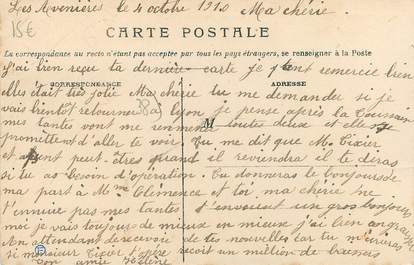 Les Avenières le 4 octobre 1910 Ma chérie.
15€
CARTE POSTALE
La correspondance au recto n'étant pas acceptée par tous les pays étrangers, se renseigner à la Poste
J'ai bien reçu ta dernière carte je t'en remercie bien
CORRESPONDANCE
ADRESSE
elle était très jolie Ma chérie tu me demander si je
vais bientôt retourner à Lyon je pense après la Toussain
M
mes tantes vont me renmener toutes deux et elle se
promettent d'aller te voir. Tu me dit que M. Tixier
est absent peut-êtres quand il reviendra il te diras
si tu as besoin d'opération. Tu donneras le bonjours de
ma part à Mme Clémence et toi, ma chérie ne
t'ennuie pas mes tantes t'envoient un gros bonjours
moi je vais toujours de mieux en mieux j'ai bien
En attendant de recevoir de tes nouvelles car tu m'écriras
si monsieur Tixier reçoit un million de baisers
ton amie